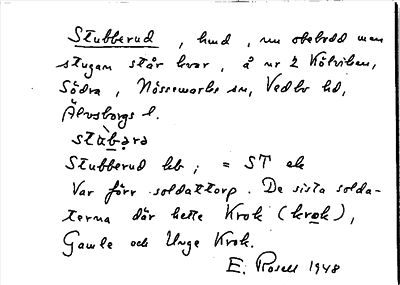 Stubberud, hmd, nu obebodd men
stugan står kvar, å nr 2 Kölviken,
Södra, Nössemarks sn, Vedbo hd,
Älvsborgs l.
stàb̲ərə
Stubberud hb; = ST ek
Var förr soldattorp. De sista solda-
terna där hette Krok (krok),
Gamle och Unge Krok.
E. Rosell 1948